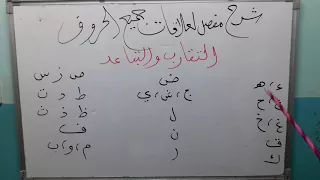 شرح مفصل لعلاقات جميع الحروف
التقارب والتباعد
ء، هـ
ع، ح
غ، خ
ق
ك
ض
ج، ش، ي
ل
ن
ر
ص ز س
ط د ت
ظ ذ ث
ف
م، و، ب